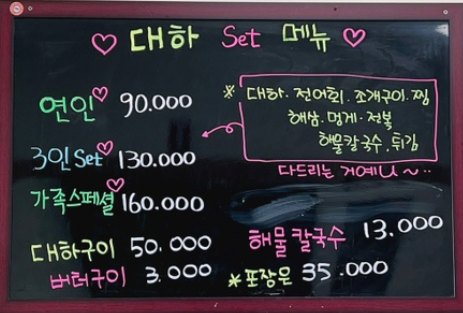 ♡ 대하 Set 메뉴 ♡
연인♡ 90.000
3인Set♡ 130.000
가족스페셜♡ 160.000
대하구이 50.000
버터구이 3.000
* 대하·전어회·조개구이·찜
해삼·멍게·전복
해물칼국수, 튀김
다드리는 거예U~··
해물칼국수 13.000
*포장은 35.000